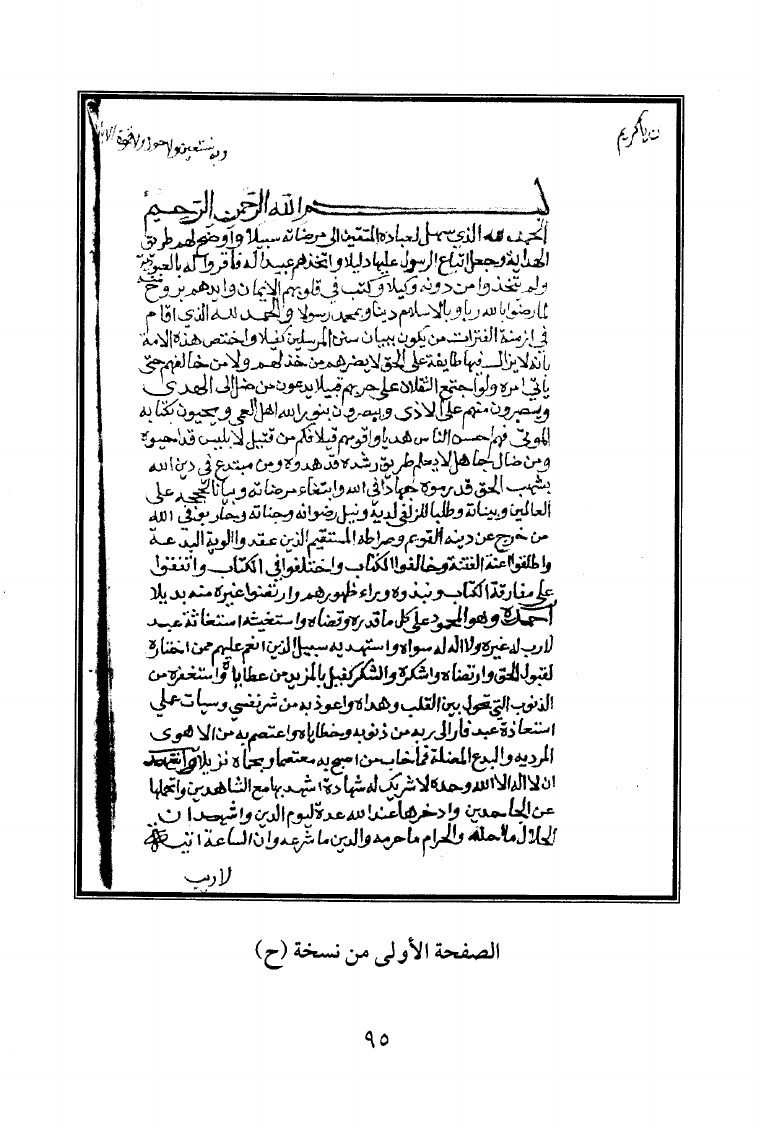 ن يا كريم
وبه نستعين ولا حول ولا قوة الا بالله
بسم الله الرحمن الرحيم
الحمد لله الذي سهل لعباده المتقين الى مرضاته سبيلا واوضح لهم طريق
الهداية وجعل اتباع الرسول عليها دليلا واتخذهم عبيدا له فاقروا له بالعبودية
ولم يتخذوا من دونه وكيلا وكتب في قلوبهم الايمان وايدهم بروح منه
لما رضوا بالله ربا وبالاسلام دينا وبمحمد رسولا والحمد لله الذي اقام
في ازمنة الفترات من يكون ببيان سنن المرسلين كفيلا واختص هذه الامة
بانه لا يزال فيها طايفة على الحق لا يضرهم من خذلهم ولا من خالفهم حتى
ياتي امره ولو اجتمع الثقلان على حربهم قبيلا يدعون من ضل الى الهدى
ويصبرون منهم على الاذى ويبصرون بنور الله اهل العمى ويحيون بكتابه
الموتى فهم احسن الناس هديا واقومهم قيلا فكم من قتيل لابليس قد احيوه
ومن ضال جاهل لا يعلم طريق رشده قد هدوه ومن مبتدع في دين الله
بشهب الحق قد رموه جهادا في الله وابتغاء مرضاته وبيانا لحججه على
العالمين وبيناته وطلبا للزلفى لديه ونيل رضوانه وجناته وحاربوا في الله
من خرج عن دينه القويم وصراطه المستقيم الذين عقدوا الوية البدعة
واطلقوا اعنة الفتنة وخالفوا الكتاب واختلفوا في الكتاب واتفقوا
على مفارقة الكتاب ونبذوه وراء ظهورهم وارتضوا غيره منه بديلا
احمده وهو المحمود على كل ما قدره وقضاه واستغيثه استغاثة عبد
لا رب له غيره ولا اله له سواه واستهديه سبيل الذين انعم عليهم ممن اختاره
لقبول الحق وارتضاه واشكره والشكر كفيل بالمزيد من عطاياه واستغفره من
الذنوب التي تحول بين القلب وهداه واعوذ به من شر نفسي وسيات عملي
استعاذة عبد فار الى ربه من ذنوبه وخطاياه واعتصم به من الاهوى
المردية والبدع المضلة فما خاب من اصبح به معتصما وبحماه نزيلا واشهد
ان لا اله الا الله وحده لا شريك له شهادة اشهد بها مع الشاهدين واتحملها
عن الجاحدين وادخرها عند الله عدة ليوم الدين واشهد ان
الحلال ما حلله والحرام ما حرمه والدين ما شرعه وان الساعة اتية
لا ريب
الصفحة الأولى من نسخة (ح)
٩٥